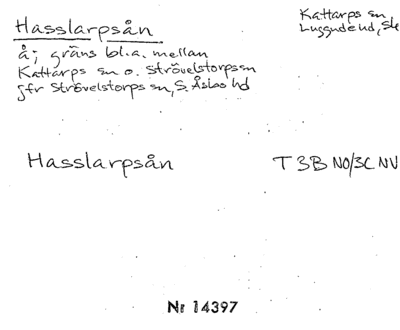 Hasslarpsån
Kattarps sn
Luggude hd, Sk
å; gräns bl.a. mellan
Kattarps sn o. Strövelstorps sn
jfr Strövelstorps sn, S. Åsbo hd
Hasslarpsån
T 3B NO/3C NV
Nr 14397